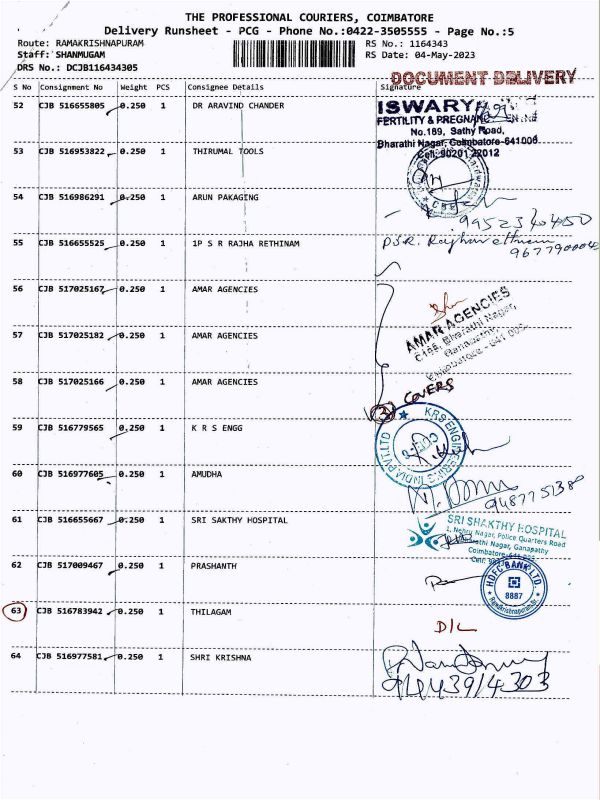 THE PROFESSIONAL COURIERS, COIMBATORE
Delivery Runsheet - PCG - Phone No.:0422-3505555 - Page No.:5
Route: RAMAKRISHNAPURAM RS No.: 1164343
Staff: SHANMUGAM RS Date: 04-May-2023
DRS No.: DCJB116434305
DOCUMENT DELIVERY
S No Consignment No Weight PCS Consignee Details Signature
52 CJB 516655805 0.250 1 DR ARAVIND CHANDER
ISWARY
FERTILITY & PREGNANCY
No.189, Sathy Road,
Bharathi Nagar, Coimbatore-641006
Cell: 90201 22012
53 CJB 516953822 0.250 1 THIRUMAL TOOLS
54 CJB 516986291 0.250 1 ARUN PAKAGING
9952340450
55 CJB 516655525 0.250 1 1P S R RAJHA RETHINAM
P.S.R. Rajharethinam
56 CJB 517025167 0.250 1 AMAR AGENCIES
AMAR AGENCIES
Bharathi Nagar,
Ganapathy,
Coimbatore - 641 006.
57 CJB 517025182 0.250 1 AMAR AGENCIES
58 CJB 517025166 0.250 1 AMAR AGENCIES
3 COVERS
59 CJB 516779565 0.250 1 K R S ENGG
KRS ENGINEERING INDIA PVT.LTD
60 CJB 516977605 0.250 1 AMUDHA
9487751380
61 CJB 516655667 0.250 1 SRI SAKTHY HOSPITAL
SRI SHAKTHY HOSPITAL
1, Nehru Nagar, Police Quarters Road
Bharathi Nagar, Ganapathy
Coimbatore
62 CJB 517009467 0.250 1 PRASHANTH
HDFC BANK LTD.
8887
Ramkrishnapuram Br.
63 CJB 516783942 0.250 1 THILAGAM
D/L
64 CJB 516977581 0.250 1 SHRI KRISHNA